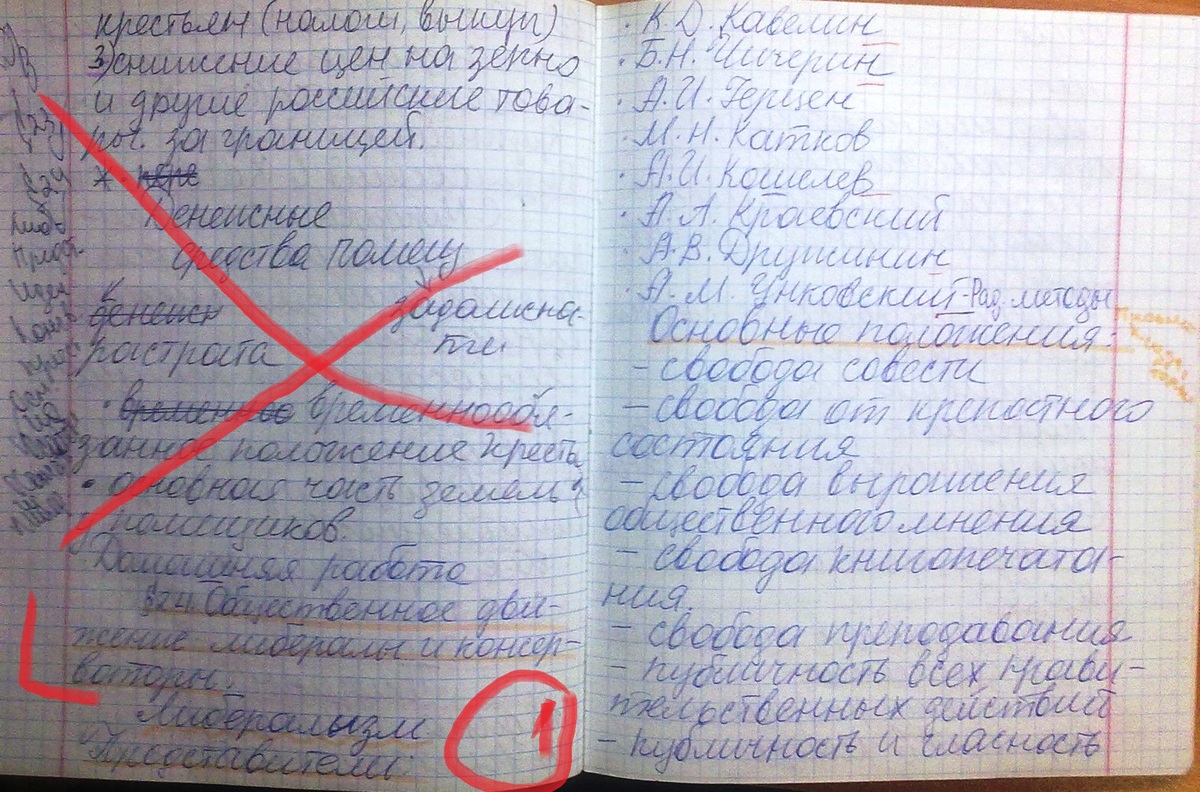 крестьян (налоги, выкупы)
3) снижение цен на зерно
и другие российские това-
ры за границей.
Денежные
средства помещ
задолжно-
сти
растрата
• временнообя-
занное положение кресть
• основная часть земель у
помещиков.
Домашняя работа
§24. Общественное дви-
жение либералы и консер-
ваторы.
Либерализм
Представители:
1
• К. Д. Кавелин
• Б. Н. Чичерин
• А. И. Герцен
• М. Н. Катков
• А. И. Кошелев
• А. А. Краевский
• А. В. Дружинин
• А. М. Унковский - Рад. методы
Основные положения:
- свобода совести
- свобода от крепостного
состояния
- свобода выражения
общественного мнения
- свобода книгопечата-
ния.
- свобода преподавания
- публичность всех прави-
тельственных действий
- публичность и гласность